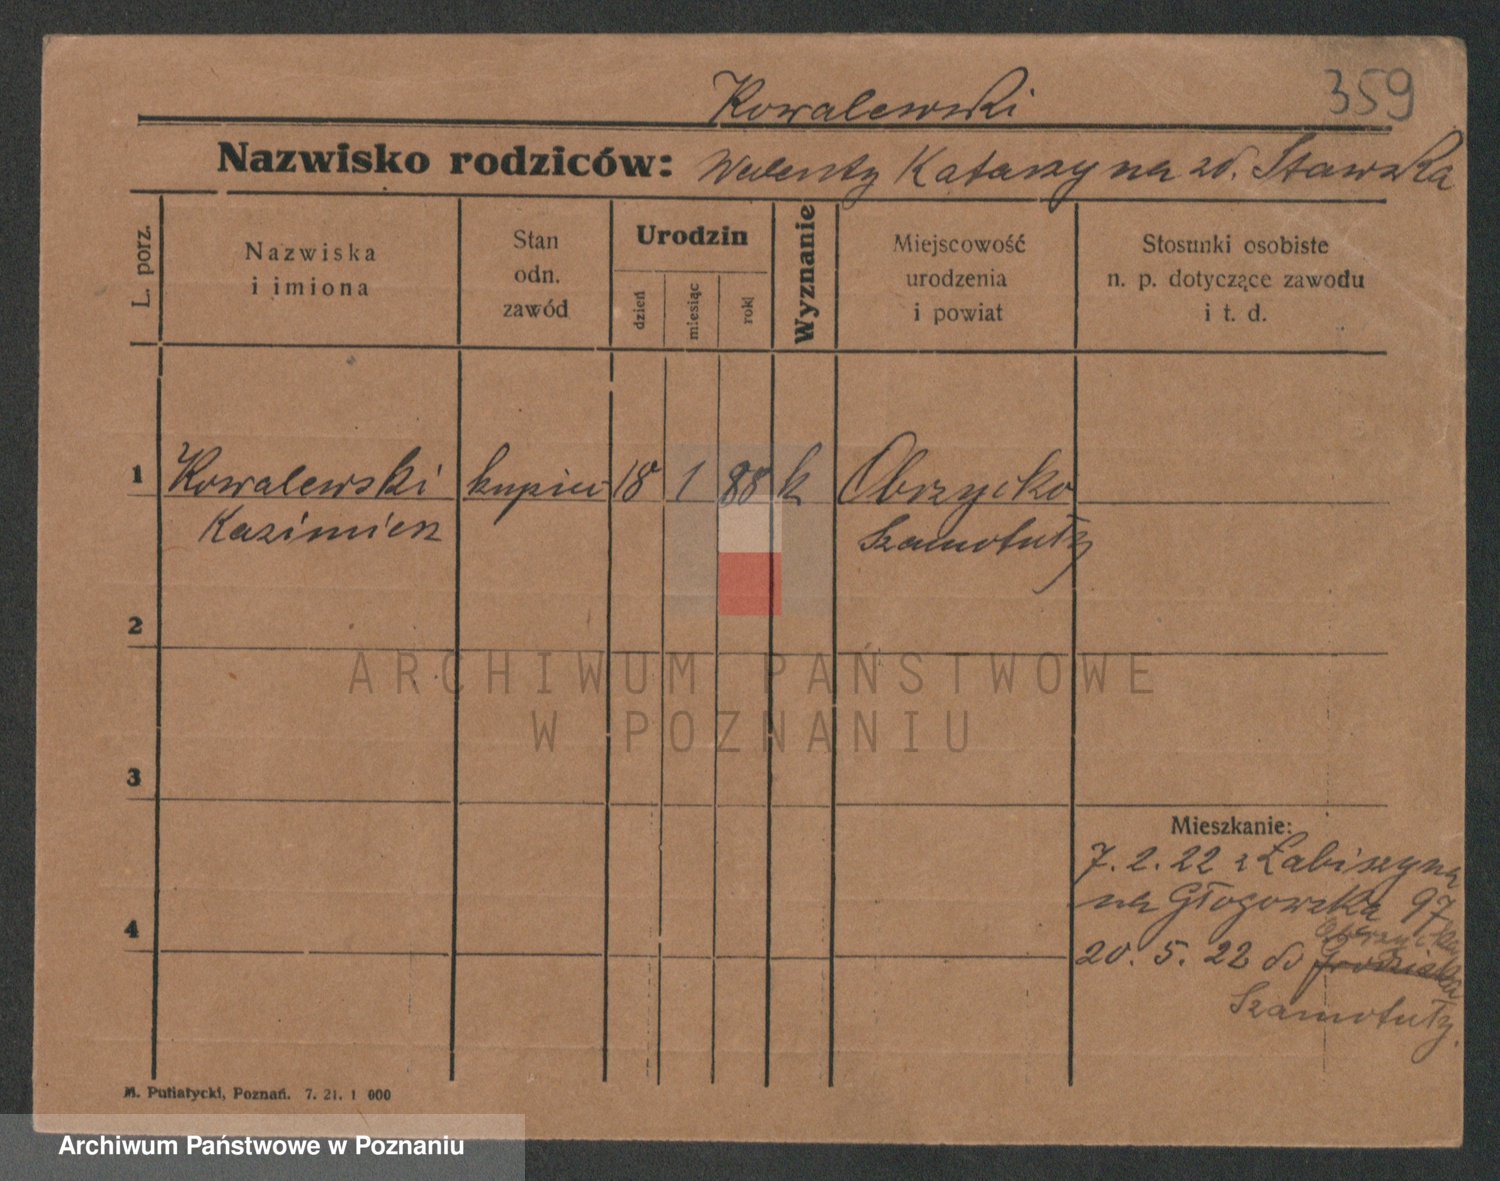 359
Kowalewski
Nazwisko rodziców: Walenty Katarzyna zd. Stawska
L. porz.
Nazwiska
i imiona
Stan
odn.
zawód
Urodzin
dzień
miesiąc
rok
Wyznanie
Miejscowość
urodzenia
i powiat
Stosunki osobiste
n. p. dotyczące zawodu
i t. d.
1 Kowalewski kupiec 18 1 88 k Obrzycko
Kazimierz Szamotuły
2
ARCHIWUM PAŃSTWOWE
W POZNANIU
3
Mieszkanie:
7. 2. 22 z Łabiszyna
na Głogowska 97
4
Obrzycka
20. 5. 22 do Grodziska
Szamotuły.
M. Putiatycki, Poznań. 7. 21. 1 000
Archiwum Państwowe w Poznaniu